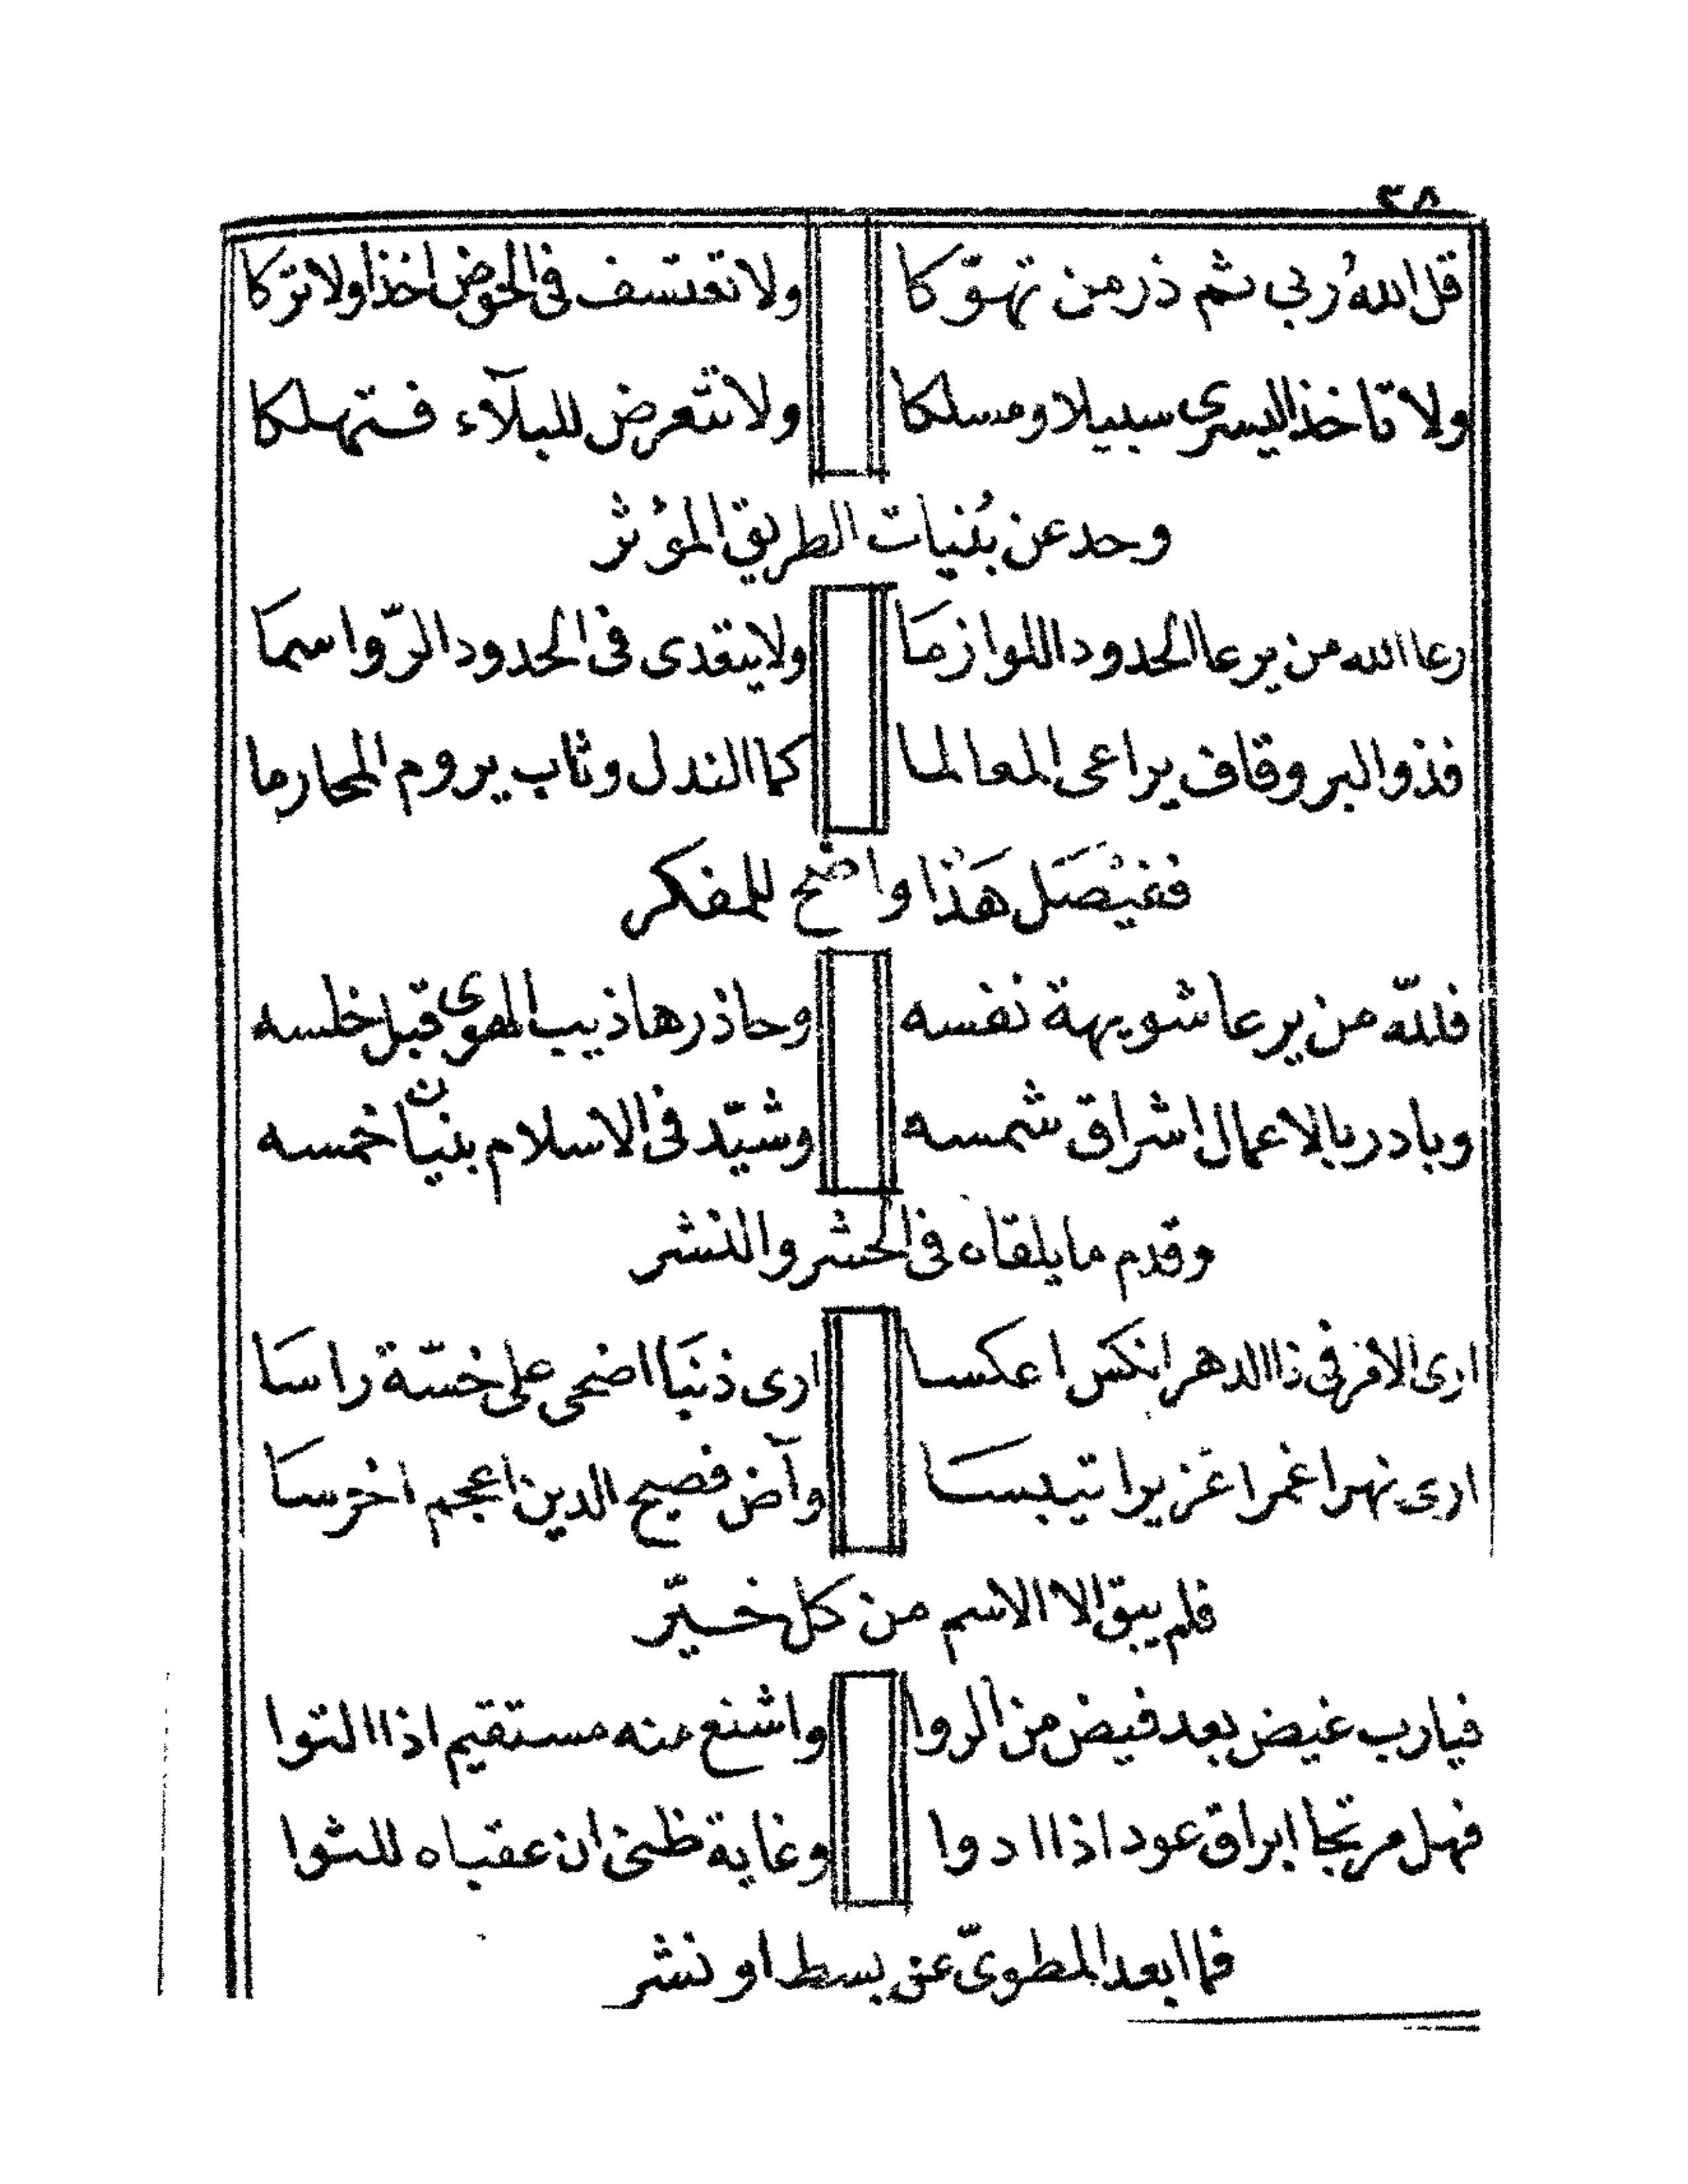 ٣٨
قل الله ربي ثم ذر من تهوّكا ولا تعتسف فى الخوض اخذا ولا تركا
ولا تاخذ اليسرى سبيلا ومسلكا ولا تتعرض للبلآء فتهلكا
وحد عن بُنيات الطريق المؤثر
رعا الله من يرعا الحدود اللوازمَا ولا يتعدى فى الحدود الرّواسمَا
فذو البر وقاف يراعى المعالما كما الندل وثاب يروم المحارما
ففيْصَل هَذا واضح للمفكر
فللّه من يرعا شويهة نفسه وحاذرها ذيب الهوى قبل خلسه
وبادر بالاعمال اشراق شمسه وشيّد فى الاسلام بنيان خمسه
وقدم ما يلقاه فى الحشر والنشر
ارى الامر فى ذا الدهر انكس اعكسا ارى ذنبَا اضحى على خسّة راسَا
ارى نهرا غمرا غزيرا تيبسَا وآض فصيح الدين اعجم اخرسَا
فلم يبق الا الاسم من كل خيّر
فيارب غيض بعد فيض من الروا واشنع منه مستقيم اذا التوا
فهل مرتجا ابراق عود اذا ادوا وغاية ظنى ان عقباه للثوا
فما ابعد المطوىّ عن بسط او نشر